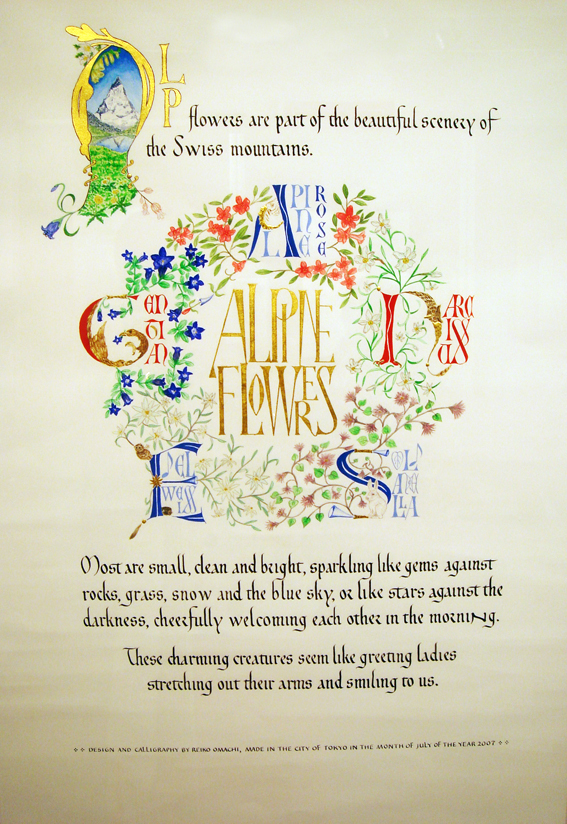 ALP flowers are part of the beautiful scenery of
the Swiss mountains.
ALPINE ROSE
GENTIAN
ALPINE
FLOWERS
NARCISSUS
EDELWEISS
SOLDANELLA
Most are small, clean and bright, sparkling like gems against
rocks, grass, snow and the blue sky, or like stars against the
darkness, cheerfully welcoming each other in the morning.
These charming creatures seem like greeting ladies
stretching out their arms and smiling to us.
DESIGN AND CALLIGRAPHY BY REIKO OMACHI, MADE IN THE CITY OF TOKYO IN THE MONTH OF JULY OF THE YEAR 2007